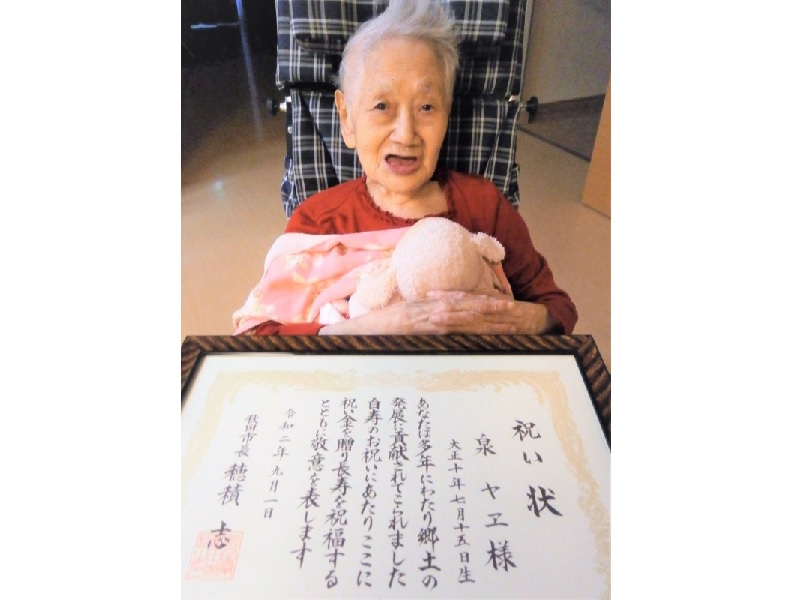 祝い状
泉ヤヱ様
大正十年七月十五日生
あなたは多年にわたり郷土の
発展に貢献されてこられました
白寿のお祝いにあたりここに
祝い金を贈り長寿を祝福する
とともに敬意を表します
令和二年九月一日
秋田市長 穂積 志